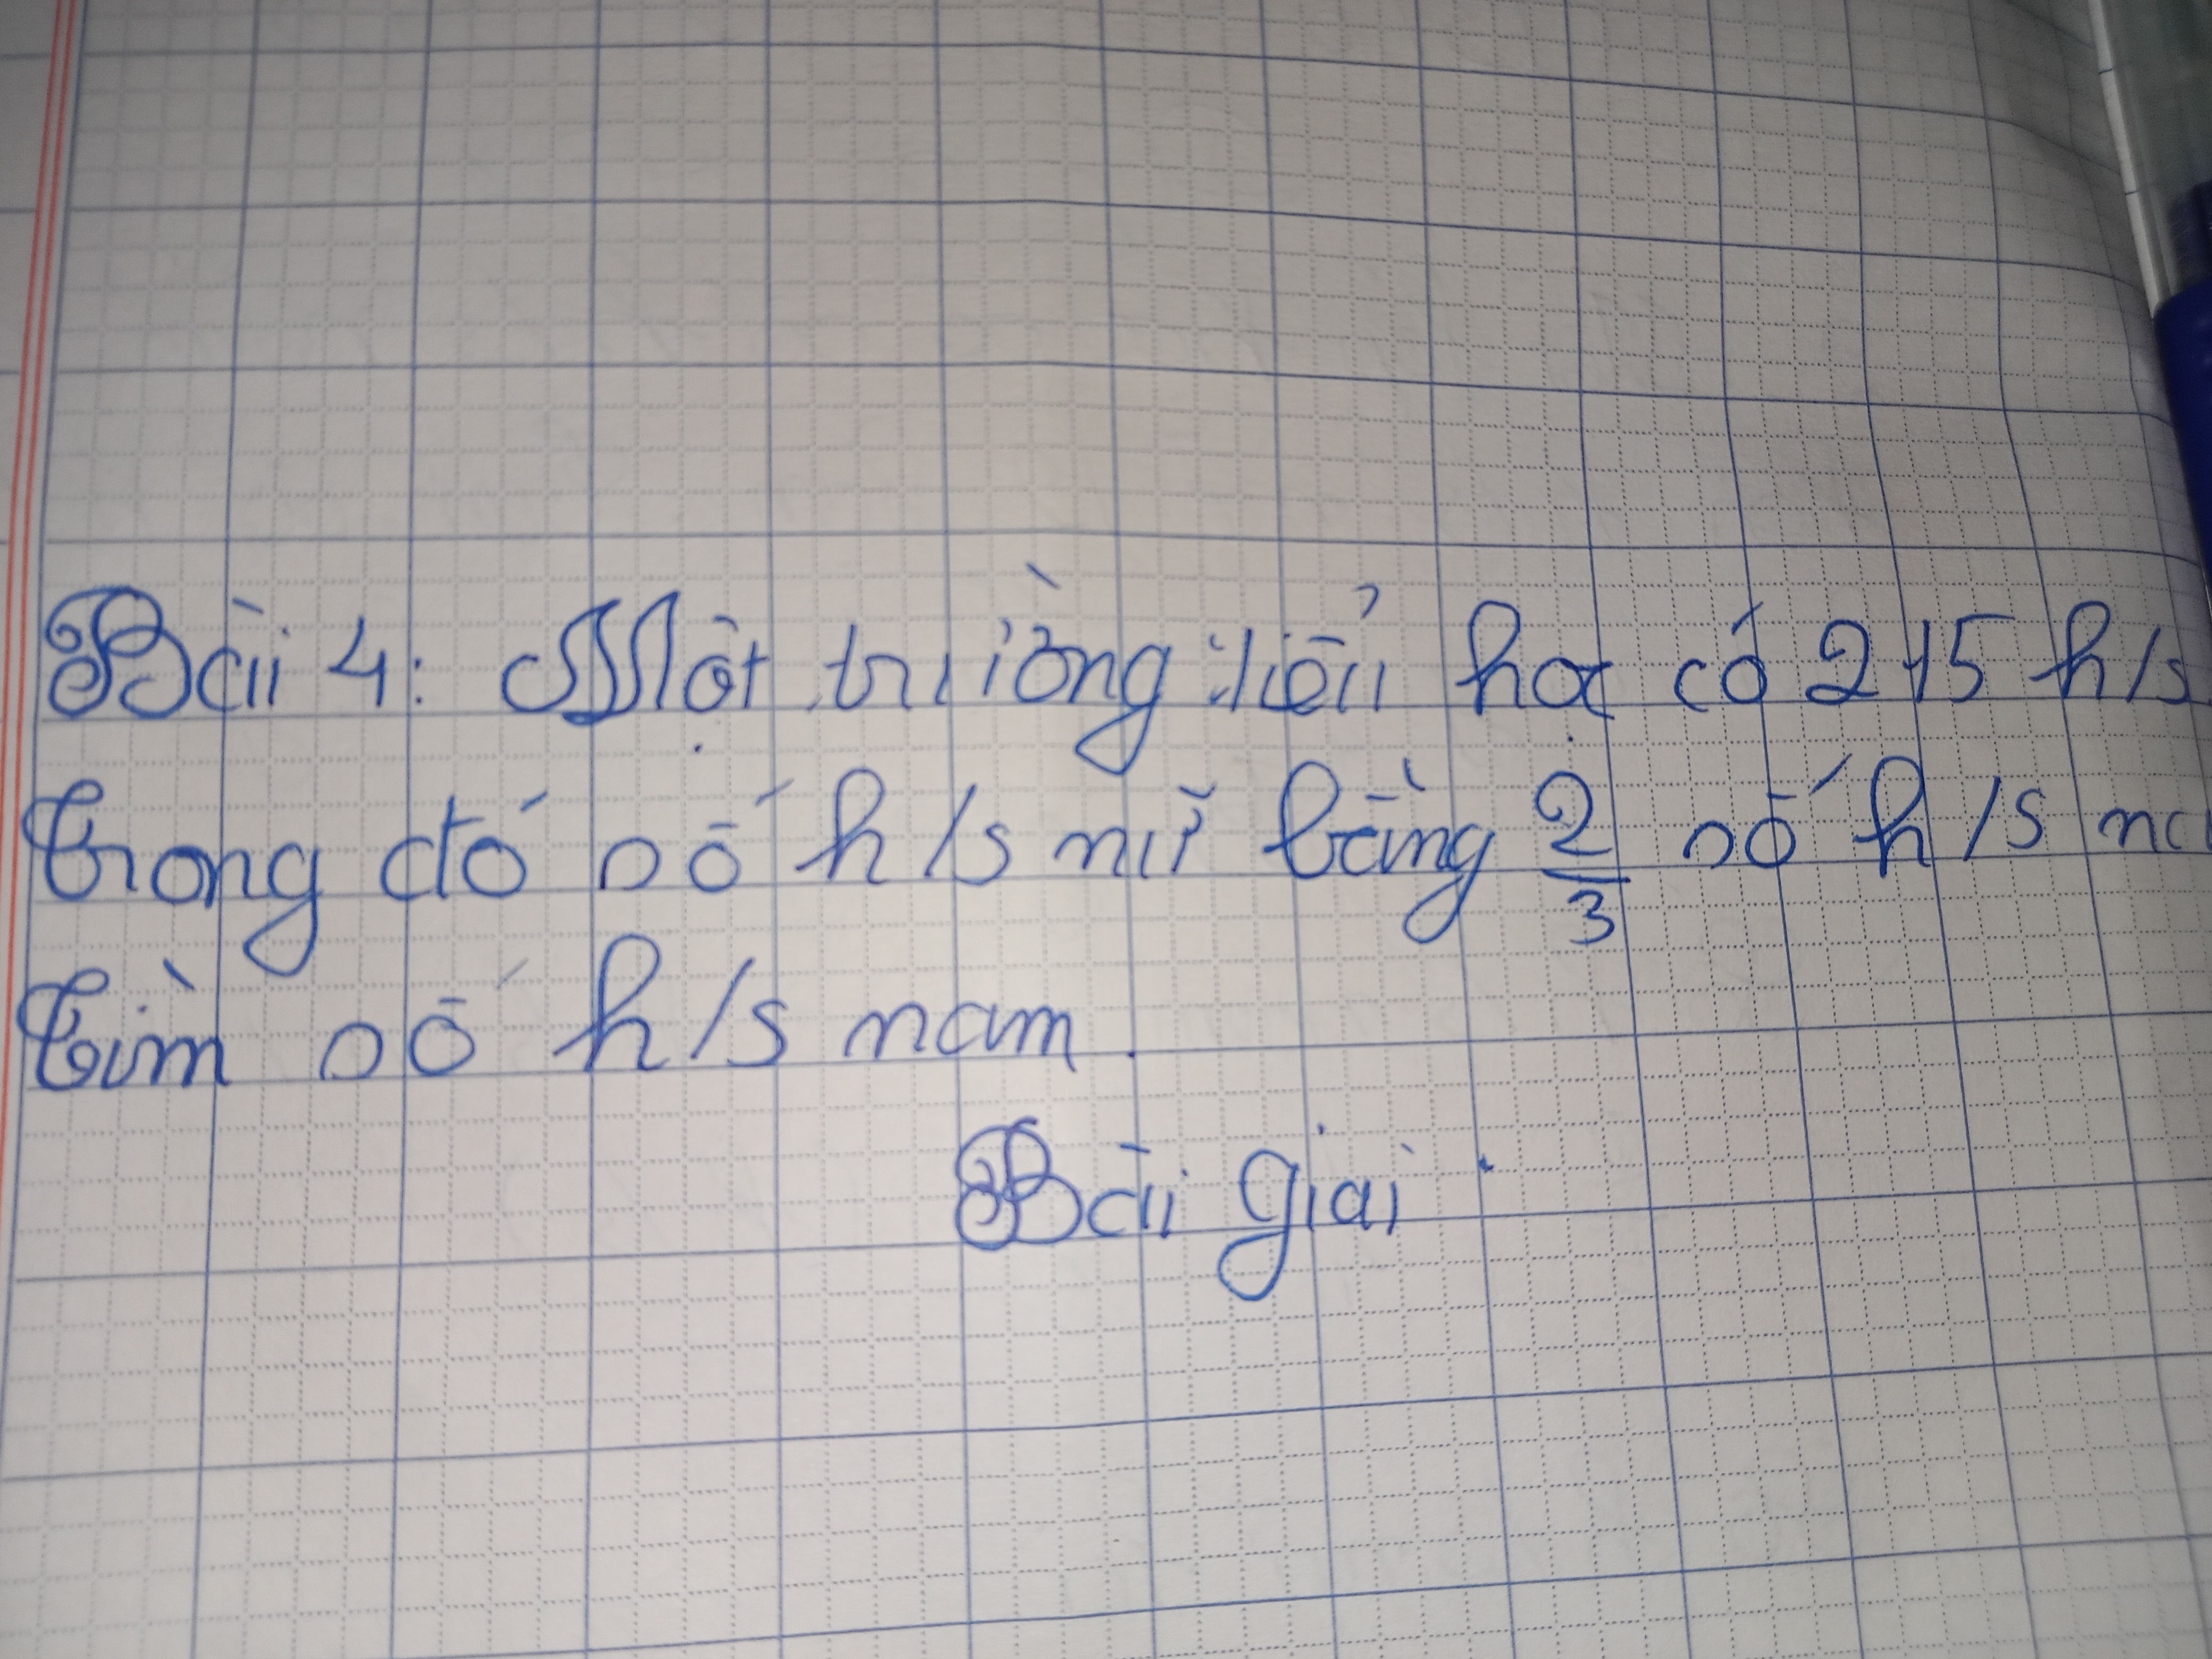 Bài 4: Một trường tiểu học có 215 h/s
trong đó số h/s nữ bằng 2/3 số h/s
tìm số h/s nam.
Bài giải